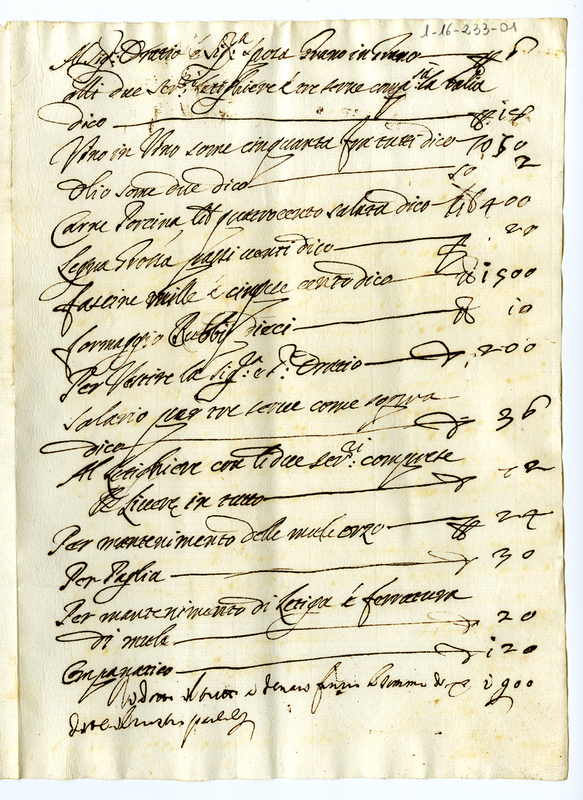 1-16-233-01
Al Sig.r Oratio è Sig.ra sposa Grano in Grano 6
alli due Ser.ri letighiere è tre serve compu.ta la balia
dico 18
Vino in Vino some cinquanta fra tutti dico 50
Olio some due dico 2
Carne Porcina lib quatrocento salata dico lib 400
Legna Grossa passi venti dico 20
fascine mille è cinque cento dico 1500
formaggio Rubbi dieci 10
Per Vestire la Sig.ra e S.r Oratio 200
Salario per tre serve come sopra
dico 36
Al letighiere con li due ser.ri comprese
le livere in tutto 72
Per mantenimento delle mule orzo 24
Per Paglia 30
Per mantenimento di letiga è ferratura
di mule 20
Companatico 120
il tutto a denaro somma di 900